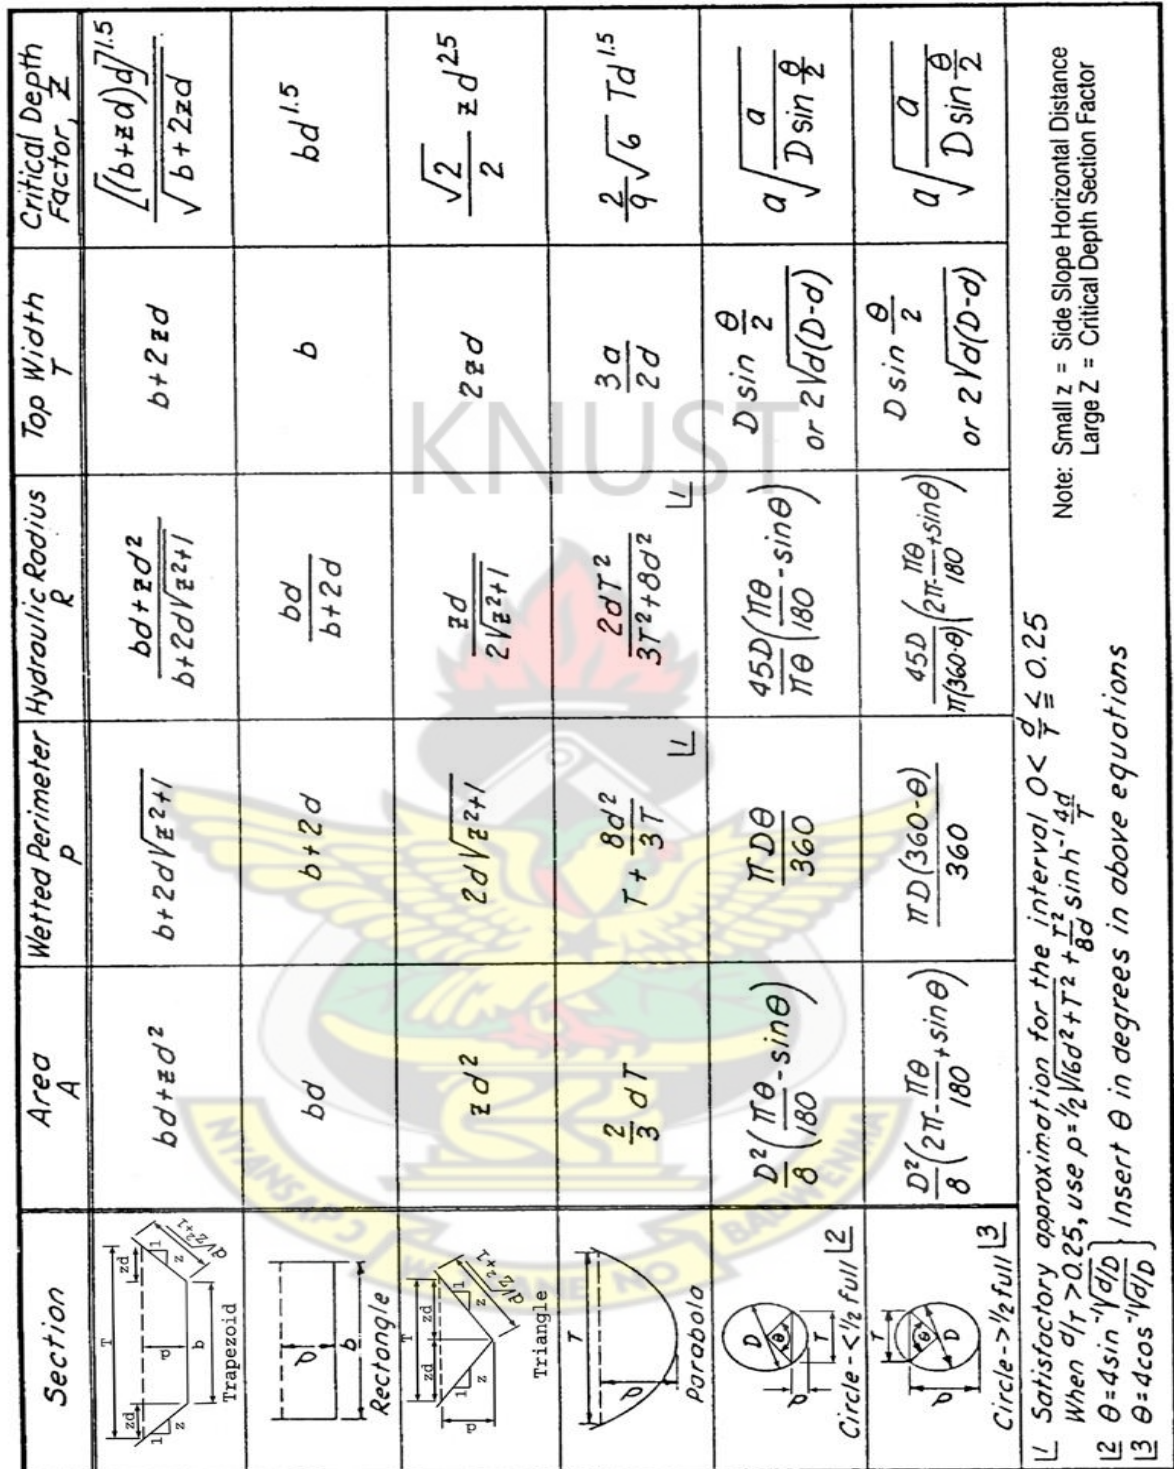 Section | Area A | Wetted Perimeter P | Hydraulic Radius R | Top Width T | Critical Depth Factor, Z
T zd zd 1 z 1 z d b d√z²+1 Trapezoid | bd+zd² | b+2d√z²+1 | bd+zd² / b+2d√z²+1 | b+2zd | [(b+zd)d]^1.5 / √b+2zd
d b Rectangle | bd | b+2d | bd / b+2d | b | bd^1.5
T zd zd 1 z 1 z d d√z²+1 Triangle | zd² | 2d√z²+1 | zd / 2√z²+1 | 2zd | √2/2 zd^2.5
T d Parabola | 2/3 dT | T + 8d²/3T ⌊1 | 2dT² / 3T²+8d² ⌊1 | 3a / 2d | 2/9 √6 Td^1.5
D θ d T Circle-<1/2 full ⌊2 | D²/8 (πθ/180 - sinθ) | πDθ / 360 | 45D/πθ (πθ/180 - sinθ) | D sin θ/2 or 2√d(D-d) | a√(a / D sin θ/2)
T θ D d Circle->1/2 full ⌊3 | D²/8 (2π - πθ/180 + sinθ) | πD(360-θ) / 360 | 45D/π(360-θ) (2π - πθ/180 + sinθ) | D sin θ/2 or 2√d(D-d) | a√(a / D sin θ/2)
⌊1 Satisfactory approximation for the interval 0< d/T ≦ 0.25
When d/T >0.25, use p= 1/2√16d²+T² + T²/8d sinh⁻¹ 4d/T
⌊2 θ=4sin⁻¹√d/D
⌊3 θ=4cos⁻¹√d/D
} Insert θ in degrees in above equations
Note: Small z = Side Slope Horizontal Distance
Large Z = Critical Depth Section Factor
KNUST